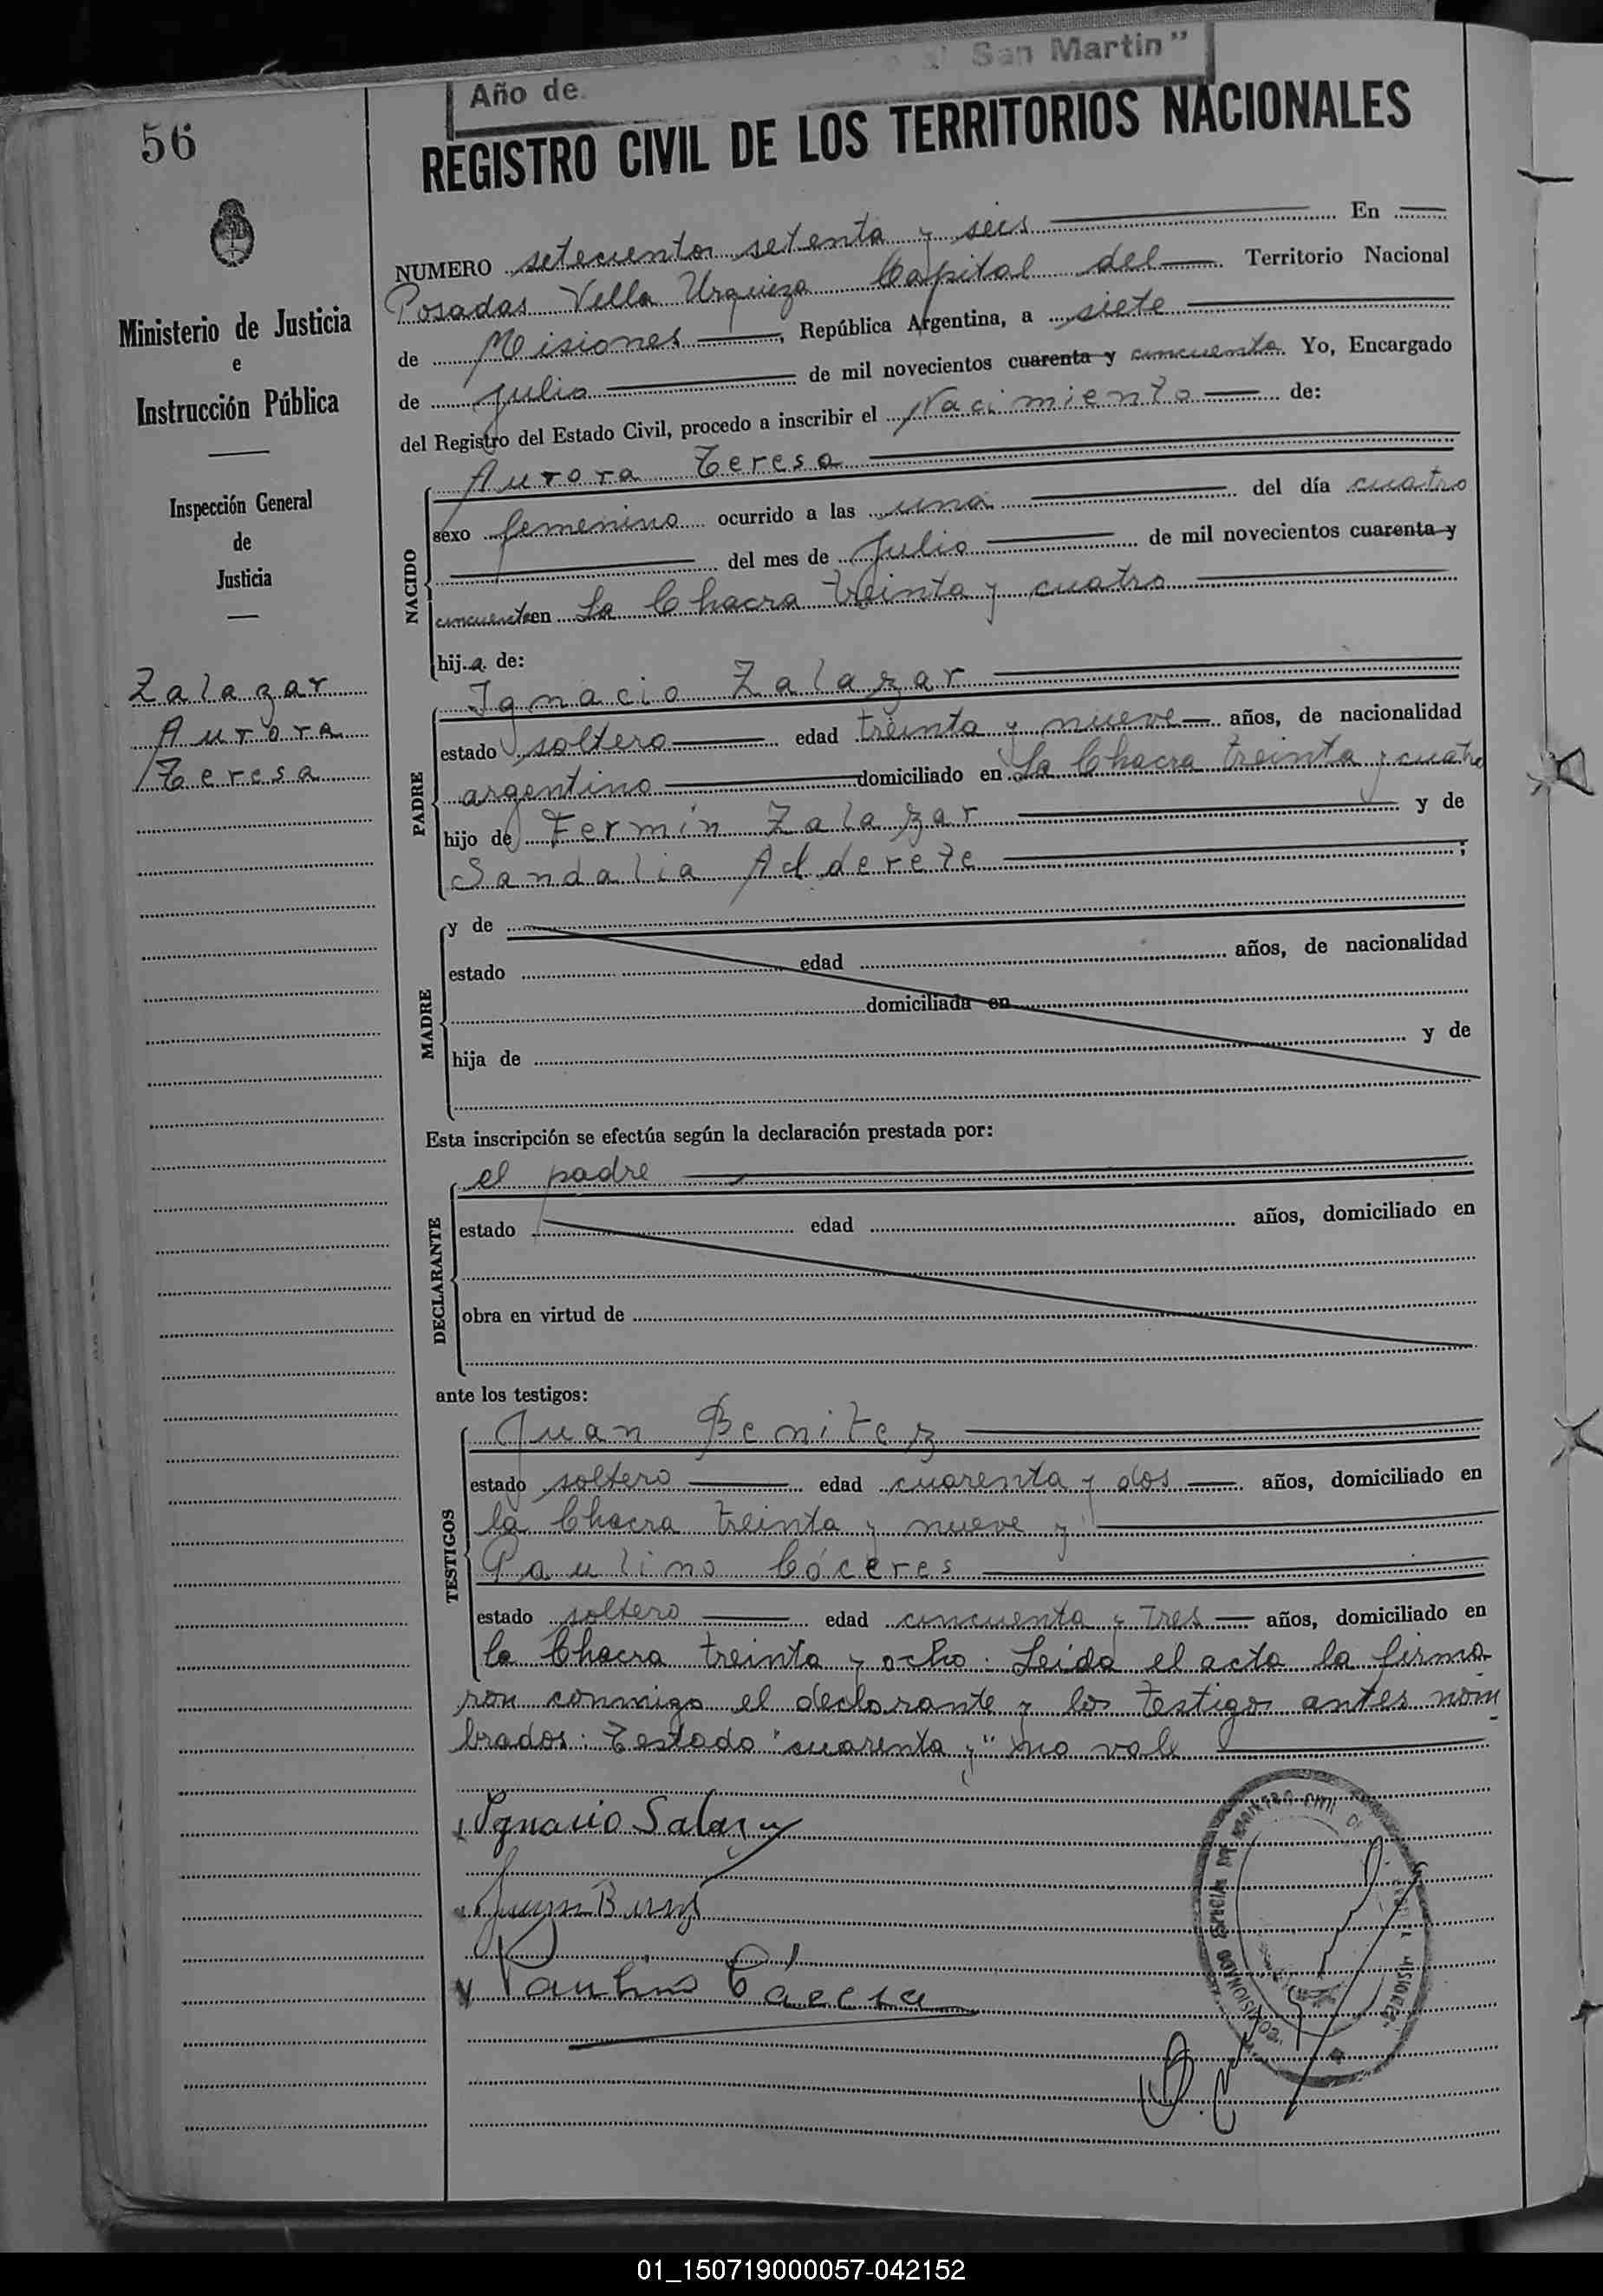 Año de San Martin"
56
REGISTRO CIVIL DE LOS TERRITORIOS NACIONALES
NUMERO setecientos setenta y seis En
Posadas Villa Urquiza Capital del Territorio Nacional
de Misiones, República Argentina, a siete
de julio de mil novecientos cuarenta y cincuenta. Yo, Encargado
del Registro del Estado Civil, procedo a inscribir el Nacimiento de:
Ministerio de Justicia
e
Instrucción Pública
Inspección General
de
Justicia
Zalazar
Aurora
Teresa
NACIDO
Aurora Teresa
sexo femenino ocurrido a las una del día cuatro
del mes de Julio de mil novecientos cuarenta y
cincuenta en La Chacra treinta y cuatro
hija de:
PADRE
Ignacio Zalazar
estado soltero edad treinta y nueve años, de nacionalidad
argentino domiciliado en La Chacra treinta y cuatro
hijo de Fermín Zalazar y de
Sandalia Alderete;
MADRE
y de
estado edad años, de nacionalidad
domiciliada en
hija de y de
Esta inscripción se efectúa según la declaración prestada por:
DECLARANTE
el padre
estado edad años, domiciliado en
obra en virtud de
ante los testigos:
TESTIGOS
Juan Benitez
estado soltero edad cuarenta y dos años, domiciliado en
la Chacra treinta y nueve y
Paulino Cáceres
estado soltero edad cincuenta y tres años, domiciliado en
la Chacra treinta y ocho. Leida el acta la firma
ron conmigo el declarante y los testigos antes nom
brados: Testado "cuarenta y" no vale
Ignacio Salazar
Paulino Cáceres
01_150719000057-042152